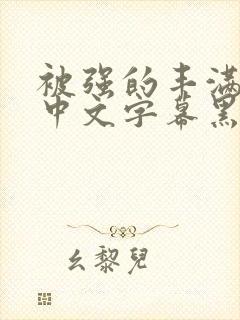 被强的丰满
中文字幕黑
幺黎兒